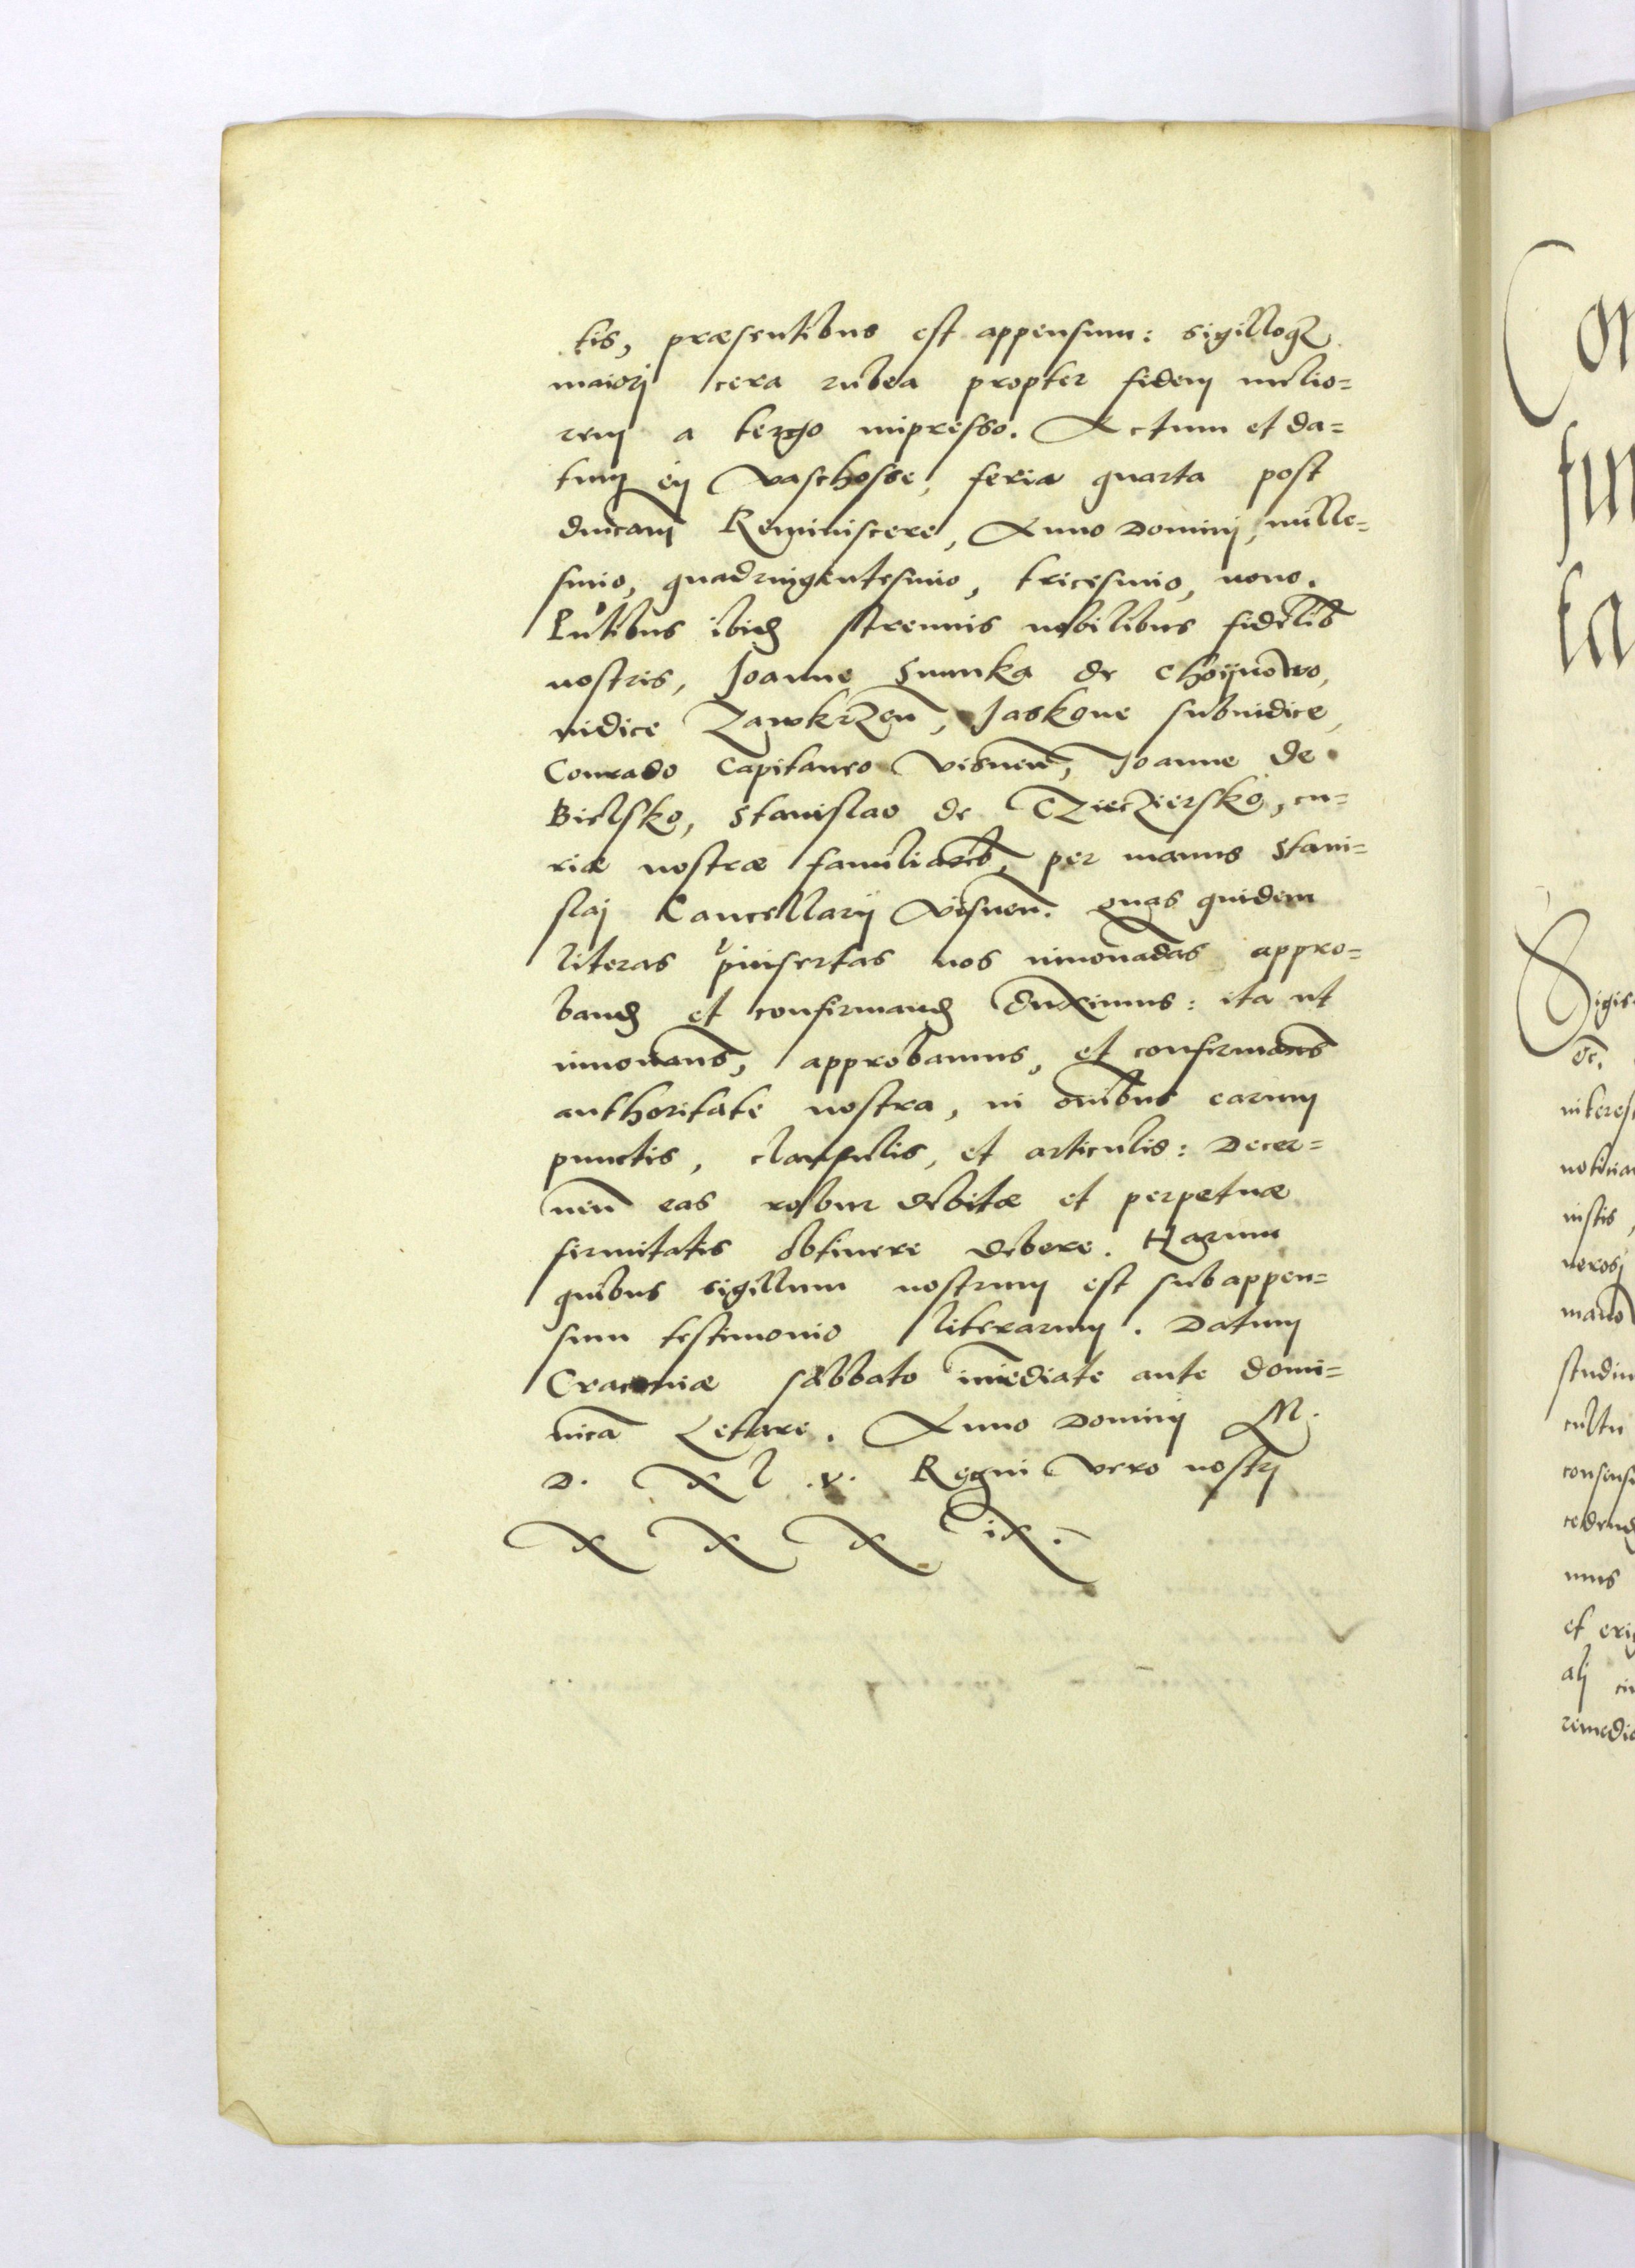 tis, præsentibus est appensum: sigilloq3
maiorj cera rubea propter fidem melio=
rem a tergo impresso. Actum et da=
tum in Waschosse, feria quarta post
dnicam Reminiscere, Anno Dominj, mille=
simo, quadringentesimo, tricesimo, nono.
Pntibus ibid strennis nobilibus fidelib
nostris, Joanne Sumka de Choÿnowo,
iudice Zawkrzen, Jaskone subiudice,
Conrado Capitaneo Visnen, Joanne de
Bielsko, Stanislao de Cziecziersko, cu=
riæ nostræ familiarib, per manus Stani=
slaj Cancellarij Visnen. quas quidem
literas pinsertas nos innouadas appro=
band et confirmand duximus: ita ut
innouams, approbamus, et confirmams
authoritate nostra, in omibus earum
punctis, clausulis, et articulis: Decer=
nen eas robur debitæ et perpetuæ
firmitatis obtinere debere. Harum
quibus sigillum nostrum est subappen=
sum testimonio literarum. Datum
Cracouiæ sabbato imediate ante domi=
nica Letare. Anno Dominj M.
D. Xl .v. Regni vero nostrj
X X X ix.
Sigis
&c.
interes
iustis,
studiu
cultu
consens
mus
et erig
alj
remedi